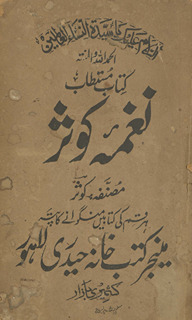 الحمدللہ والمنتہ
کتاب مستطاب
نغمہ کوثر
مصنفہ کوثر
ہر قسم کی کتابیں منگوانے کا پتہ
مینجر کتب خانہ حیدری لاہور
کشمیری بازار